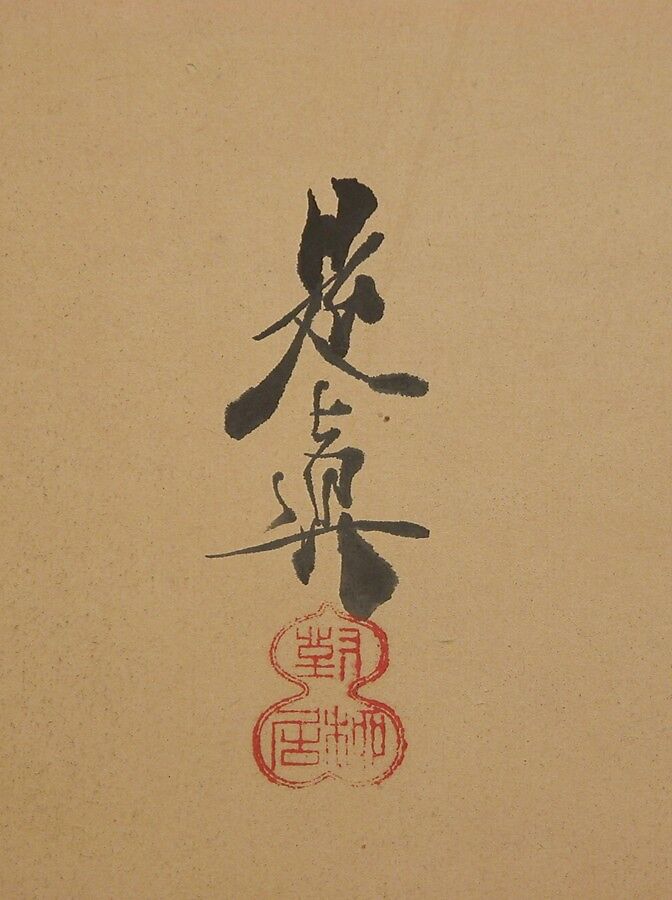 是真
對柳居